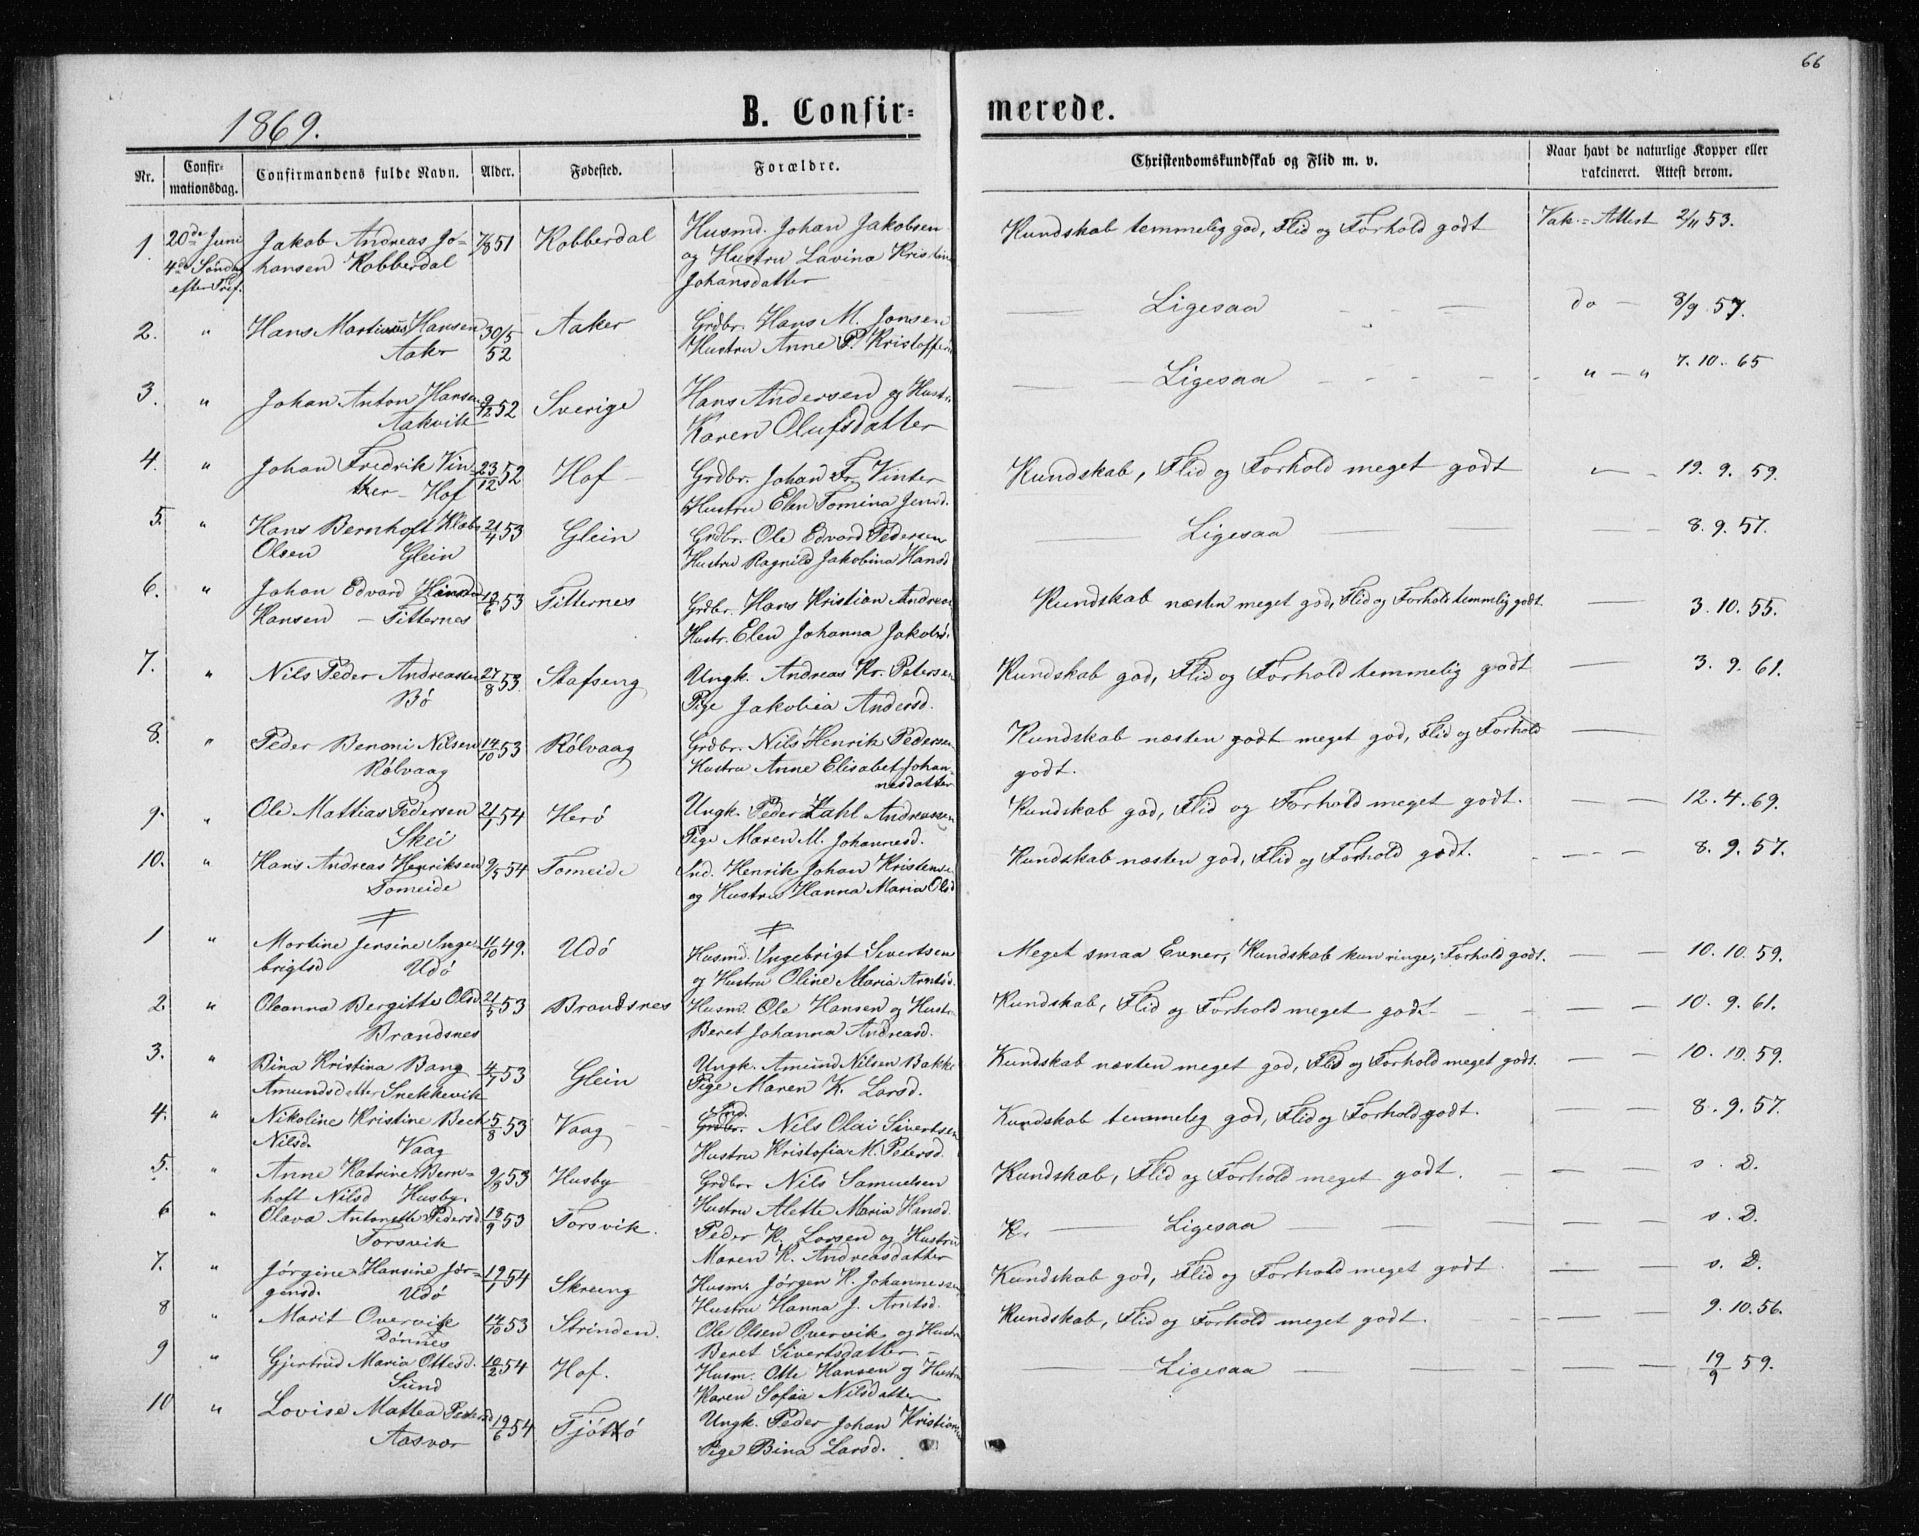 66
1869.
B. Confir=
merede.
Nr.
Confir-
mationsdag.
Confirmandens fulde Navn.
Alder.
Fødested.
Forældre.
Christendomskundskab og Flid m. v.
Naar havt de naturlige Kopper eller
vakcineret. Attest derom.
1 20de Juni Jakob Andreas Jo- 7/8 51 Kobberdal Husmd. Johan Jakobsen Kundskab temmelig god, Flid og Forhold godt Vak.=Attest 2/11 53.
4de Søndag hansen Kobberdal og Hustru Lavina Kristin
efter Tref. Johansdatter
2. " Hans Martinus Hansen 30/5 Aaker Grdbr. Hans M. Jonsen — Ligesaa — do — 8/9 57.
Aaker 52 Hustru Anne P. Kristoffers
3. " Johan Anton Hansen 9/12 52 Sverige Hans Andersen og Hustr — Ligesaa — " — " 7. 10. 65
Aakvik Karen Olufsdatter
4. " Johan Fredrik Vin- 23/12 52 Hof — Grdbr. Johan Fr. Vinter Kundskab, Flid og Forhold meget godt — 19. 9. 59.
ther — Hof Hustru Elen Tomina Jensd.
5. " Hans Bernhoft Klabo 21/4 53 Glein Grdbr. Ole Edvard Pedersen — Ligesaa — 8. 9. 57.
Olsen Glein Hustru Ragnild Jakobina Hansd
6. " Johan Edvard 12/6 53 Titternes Grdbr. Hans Kristian Andreas Kundskab næsten meget god, Flid og Forhold temmlig godt. — 3. 10. 55.
Hansen — Titternes Hustr. Elen Johanna Jakobs.
7. " Nils Peder Andreassen 27/8 53. Stafseng Ungk. Andreas Kr. Petersen Kundskab god, Flid og Forhold temmelig godt — 3. 9. 61.
Bø Pige Jakobia Andersd.
8. " Peder Benoni Nilsen 14/10 53 Rølvaag Grdbr. Nils Henrik Pedersen Kundskab næsten godt meget god, Flid og Forhold —
Rølvaag Hustru Anne Elisabet Johan- godt.
nesdatter
9. " Ole Mattias Pedersen 21/1 54 Herø Ungk. Peder Zahl Andreassen Kundskab god, Flid og Forhold meget godt. — 12. 4. 69.
Skei Pige Maren M. Johannesd.
10. " Hans Andreas Henriksen 9/5 54 Tomeide Ind. Henrik Johan Kristense Kundskab næsten god, Flid og Forhold godt. — 8. 9. 57.
Tomeide og Hustru Hanna Maria Olsd
1 " Martine Jensine Inge- 11/10 49. Udø Husmd. Ingebrigt Sivertsen Meget smaa Evner, Kundskab kun ringe, Forhold godt. — 10. 10. 59.
brigtsd Udø og Hustru Oline Maria Arntsd.
2. " Oleanna Bergitte Olsd 21/5 53 Brandsnes Husmd. Ole Hansen og Hustr Kundskab, Flid og Forhold meget godt — 10. 9. 61.
Brandsnes Beret Johanna Andreasd.
3. " Bina Kristina Bang 4/7 53 Glein Ungk. Amund Nilsen Bakke Kundskab næsten meget god, Flid og Forhold meget godt. — 10. 10. 59.
Amundsdatter Snekkevik Pige Maren K. Larsd.
4. " Nikoline Kristine Bech 5/8 53 Vaag Ind. Grdbr. Nils Olai Sivertsen Kundskab temmelig god, Flid og Forhold godt. — 8. 9. 57.
Nilsd. Vaag Hustru Kristofia M. Petersd.
5. " Anne Katrine Bern- 9/8 53 Husby Grdbr. Nils Samuelsen Kundskab, Flid og Forhold meget godt. — s. D.
hoft Nilsd Husby. Hustru Alette Maria Hansd.
6 " Olava Antonette Pedersd 18/9 53 Forsvik. Peder K. Larsen og Hustru K. — Ligesaa — s. D.
Forsvik Maren K. Andreasdatter
7. " Jørgine Hansine Jør- 19/1 54 Skreng Husm. Jørgen H. Johannessen Kundskab god, Flid og Forhold meget godt. — s. D.
gensd. Udø Hustru Hanna J. Arntsd.
8 " Marit Overvik 14/10 53 Strinden. Ole Olsen Overvik og Hustr Kundskab, Flid og Forhold meget godt. — 9. 10. 56.
Dønnes Beret Sivertsdatter —
9 " Gjertrud Maria Ottesd. 10/2 54 Hof. Husm. Otte Hansen og Hustru — Ligesaa — 19/9 59.
Sund Karen Sofia Nilsdatter
10 " Lovise Mattea Pedersd 19/6 54 Tjøttø Ungk. Peder Johan Kristians
Aasvær Pige Bina Larsd.